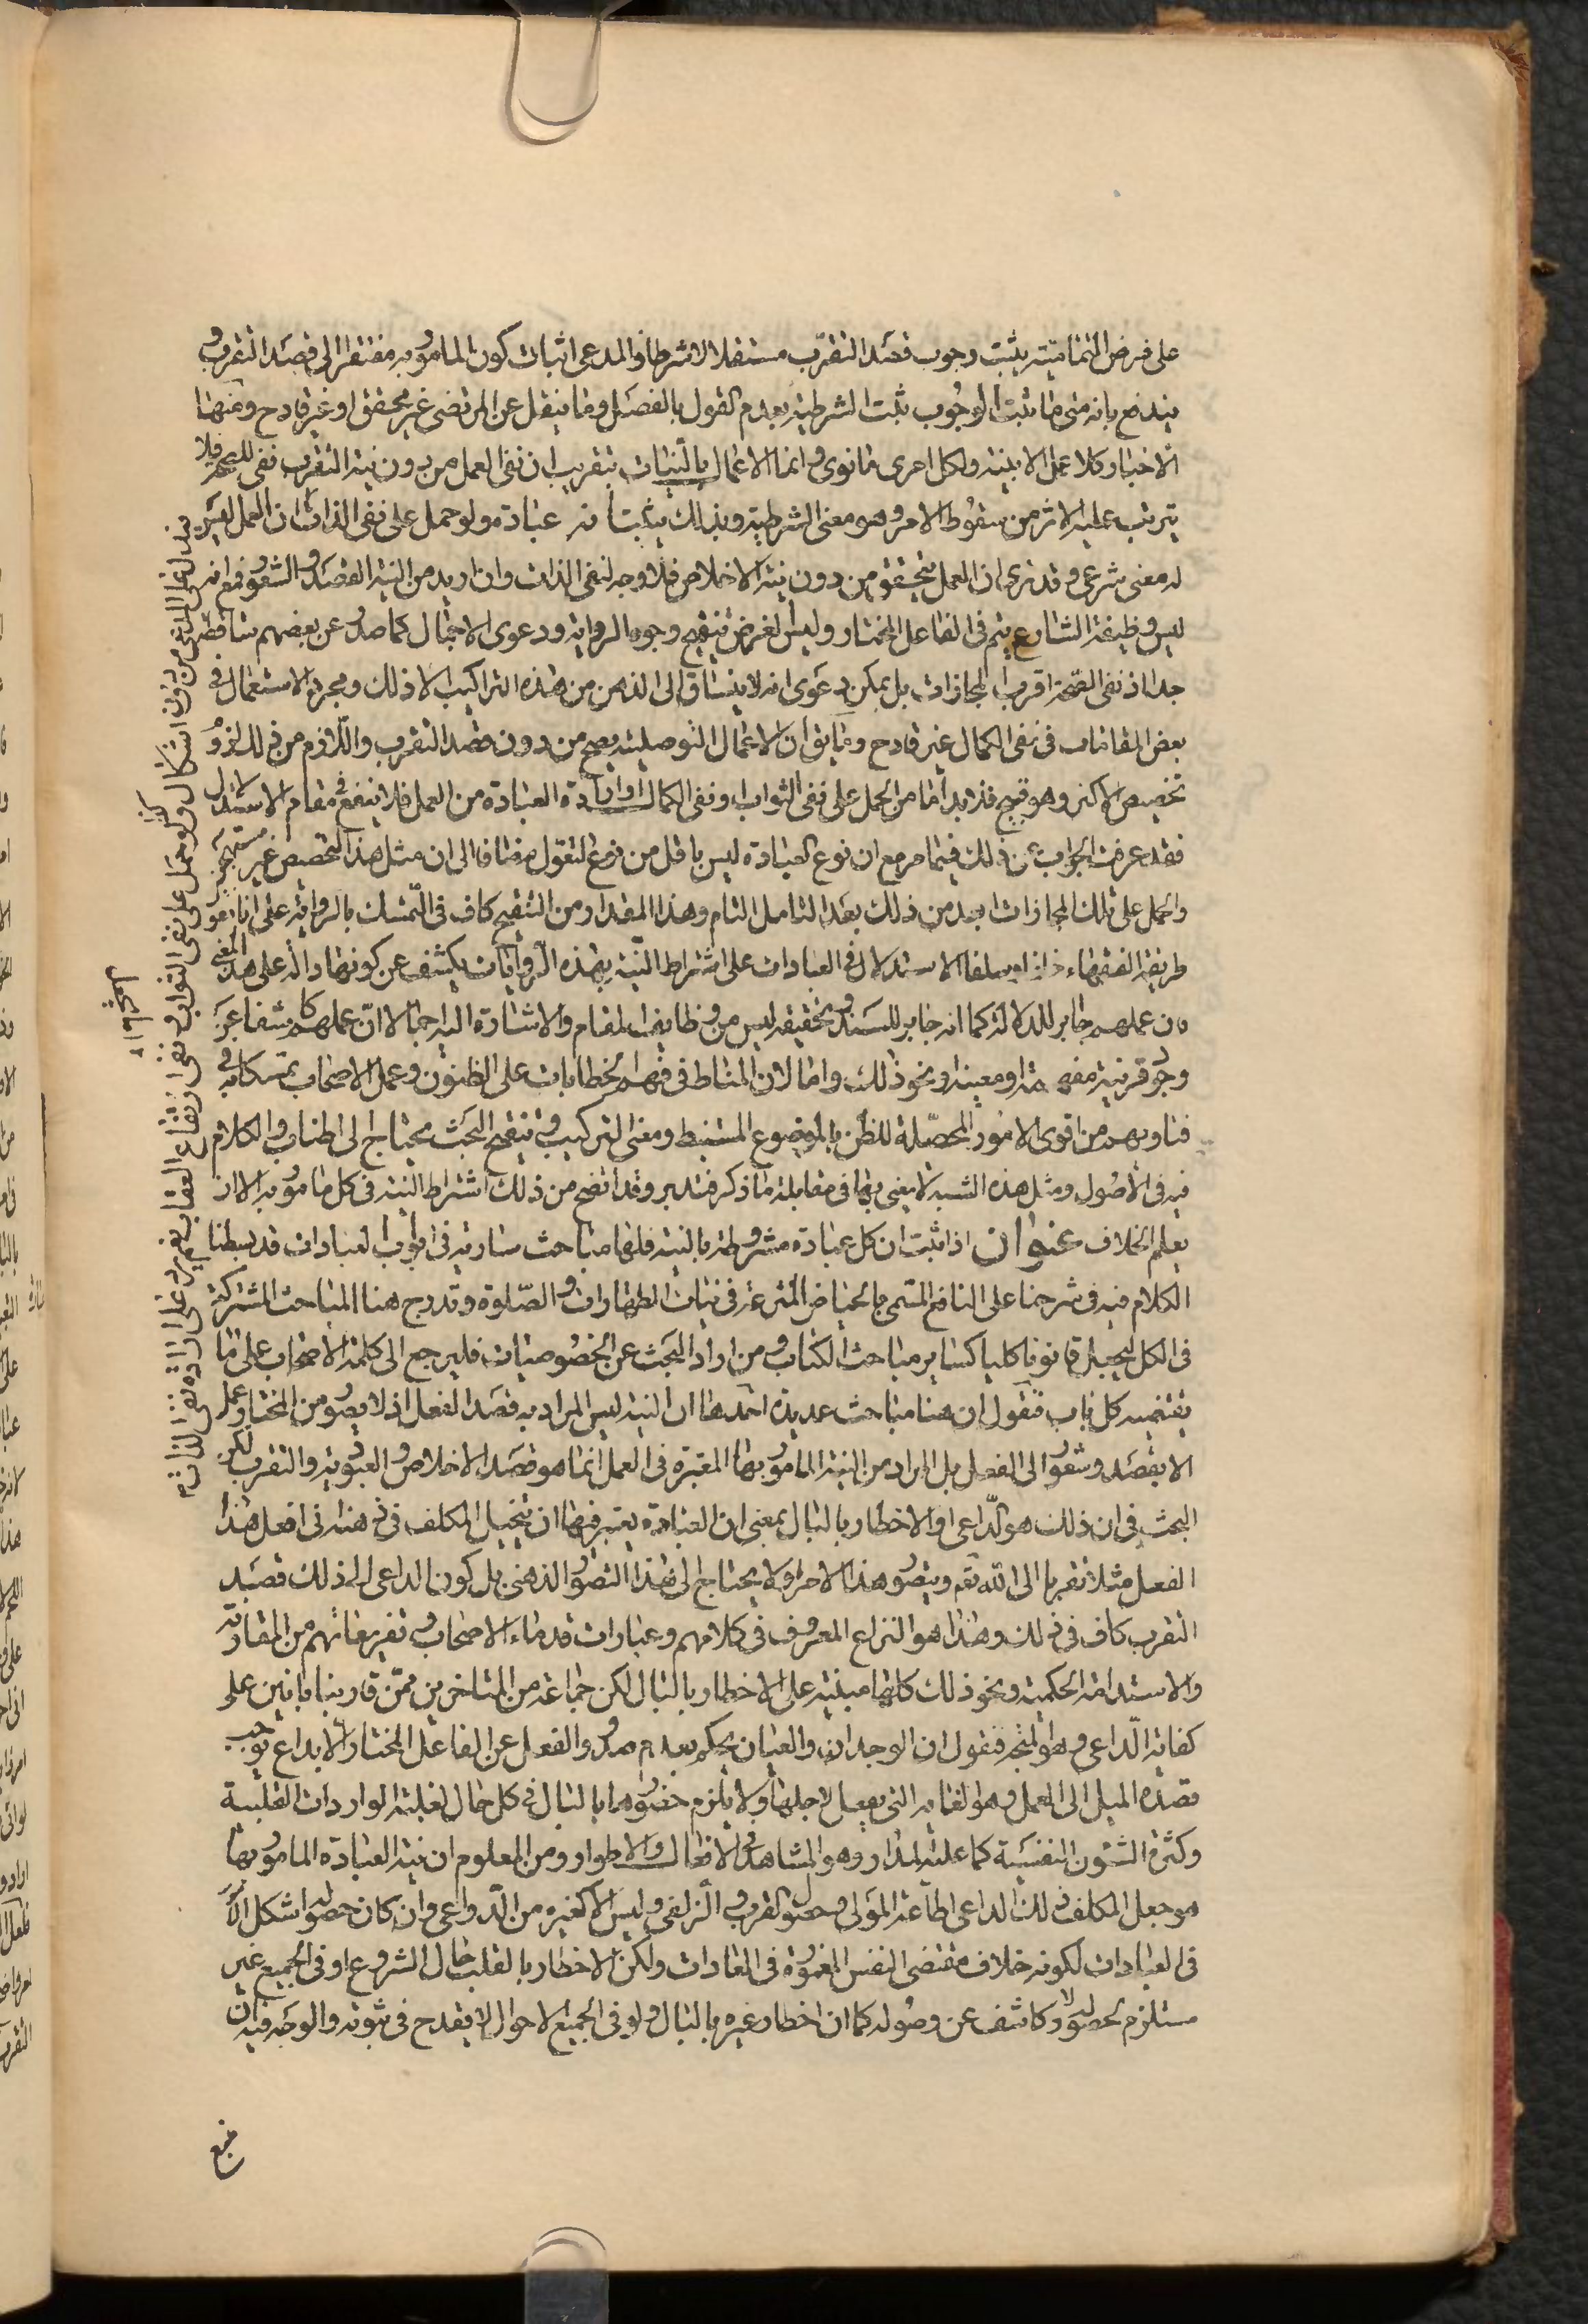 على فرض التمامية يثبت وجوب قصد التقرب مستقلا لا شرطا والمدعى اثبات كون المامور به مفتقرا الى قصد التقرب و
يندفع بانه متى ما ثبت الوجوب ثبت الشرطية بعدم القول بالفصل وما ينقل عن المرتضى غير محقق او غير قادح ومنها
الاخبار كلا عمل الا بنية ولكل امرئ ما نوى وانما الاعمال بالنيات بتقريب ان نفى العمل من دون نية التقرب نفى للصحة فلا
يترتب عليه الاثر من سقوط الامر وهو معنى الشرطية وبذلك يثبت انه عبادة ولو حمل على نفى الذات ان العمل ليس
له معنى شرعى وقد نرى ان العمل يتحقق من دون نية الاخلاص فلا وجه لنفى الذات وان اريد من النية القصد والشعور فمع انه
ليس وظيفة الشارع يتم فى الفاعل المختار وليس لغرض تنقيح وجوه الرواية ودعوى الاجمال كما صدر عن بعضهم ساقطة
جدا اذ نفى الصحة اقرب المجازات بل يمكن دعوى انه لا ينساق الى الذهن من هذه التراكيب الا ذلك ومجرد الاستعمال فى
بعض المقامات فى نفى الكمال غير قادح وما يق ان الاعمال التوصلية يصح من دون قصد التقرب واللازم من ذلك لزوم
تخصيص الاكثر وهو قبيح فلا بد اما من الحمل على نفى الثواب او نفى الكمال او ارادة العبادة من العمل فلا ينفع فى مقام الاستدلال
فقد عرفت الجواب عن ذلك فيما مر مع ان نوع العبادة ليس باقل من نوع التوصل مضافا الى ان مثل هذا التخصيص غير مستهجن
والحمل على تلك المجازات ابعد من ذلك بعد التامل التام وهذا المقدار من التنقيح كاف فى التمسك بالرواية على انا نقول
طريقة الفقهاء خلفا وسلفا الاستدلال فى العبادات على اشتراط النية بهذه الروايات يكشف عن كونها دالة على هذا المعنى
فان عملهم جابر للدلالة كما انه جابر للسند وتحقيقه ليس من وظايف المقام والاشارة اليه اجمالا ان عملهم كاشف اما عن
وجود قرينة مفهمة او معينة او نحو ذلك واما لان المناط فى فهم الخطابات على الظنون وعمل الاصحاب بتمسكاتهم فى
فتاويهم من اقوى الامور المحصلة للظن بالموضوع المستنبط ومعنى التركيب وتنقيح البحث محتاج الى اطناب والكلام
فيه فى الاصول ومثل هذه الشبه لا يعتنى بها فى مقابلة ما ذكر فتدبر وقد اتضح من ذلك اشتراط النية فى كل مامور به الا ان
يعلم الخلاف عنوان اذا ثبت ان كل عبادة مشروطة بالنية فلها مباحث سارية فى ابواب العبادات قد بسطنا
الكلام فيه فى شرحنا على النافع المسمى بالحياض المترعة فى نيات الطهارات والصلوة وندرج هنا المباحث المشتركة
فى الكل ليجعل قانونا كليا كساير مباحث الكتاب ومن اراد البحث عن الخصوصيات فليرجع الى كلمة الاصحاب على ما
يقتضيه كل باب فنقول ان هنا مباحث عديدة احدها ان النية ليس المراد به قصد الفعل اذ لا يصدر من المختار عمل
الا بقصد وشعور الى الفعل بل المراد من النية المامور بها المعتبرة فى العمل انما هو قصد الاخلاص والعبودية والتقرب لكن
البحث فى ان ذلك هو الداعى او الاخطار بالبال بمعنى ان العبادة يعتبر فيها ان يتخيل المكلف فى ذهنه انى افعل هذا
الفعل مثلا تقربا الى الله تعم ويتصور هذا الامر او لا يحتاج الى هذا التصور الذهنى بل كون الداعى الى ذلك قصد
التقرب كاف فى ذلك وهذا هو النزاع المعروف فى كلامهم وعبارات قدماء الاصحاب وتفريعاتهم من المقارنة
والاستدامة الحكمية ونحو ذلك كلها مبنية على الاخطار بالبال لكن جماعة من المتاخرين ممن قاربنا بانين على
كفاية الداعى وهو المتجه فنقول ان الوجدان والعيان يحكم بعدم صدور الفعل عن الفاعل المختار الا بداع يوجب
قصده الميل الى العمل وهو الغاية التى يفعل لاجلها ولا يلزم حضورها بالبال فى كل حال لغلبة الواردات القلبية
وكثرة الشئون النفسية كما عليه المدار وهو المشاهد فى الافعال والاطوار ومن المعلوم ان نية العبادة المامور بها
هو جعل المكلف ذلك الداعى اطاعة المولى وحصول القرب والزلفى وليس الا كغيره من الدواعى وان كان حصوله اشكل الامر
فى العبادات لكونه خلاف مقتضى النفس المغمورة فى العادات ولكن الاخطار بالقلب حال الشروع او فى الجميع غير
مستلزم لحصوله ولا كاشف عن وصوله كما ان اخطار غيره بالبال ولو فى الجميع الاحوال لا يقدح فى ثبوته والوجه فيه ان
منع